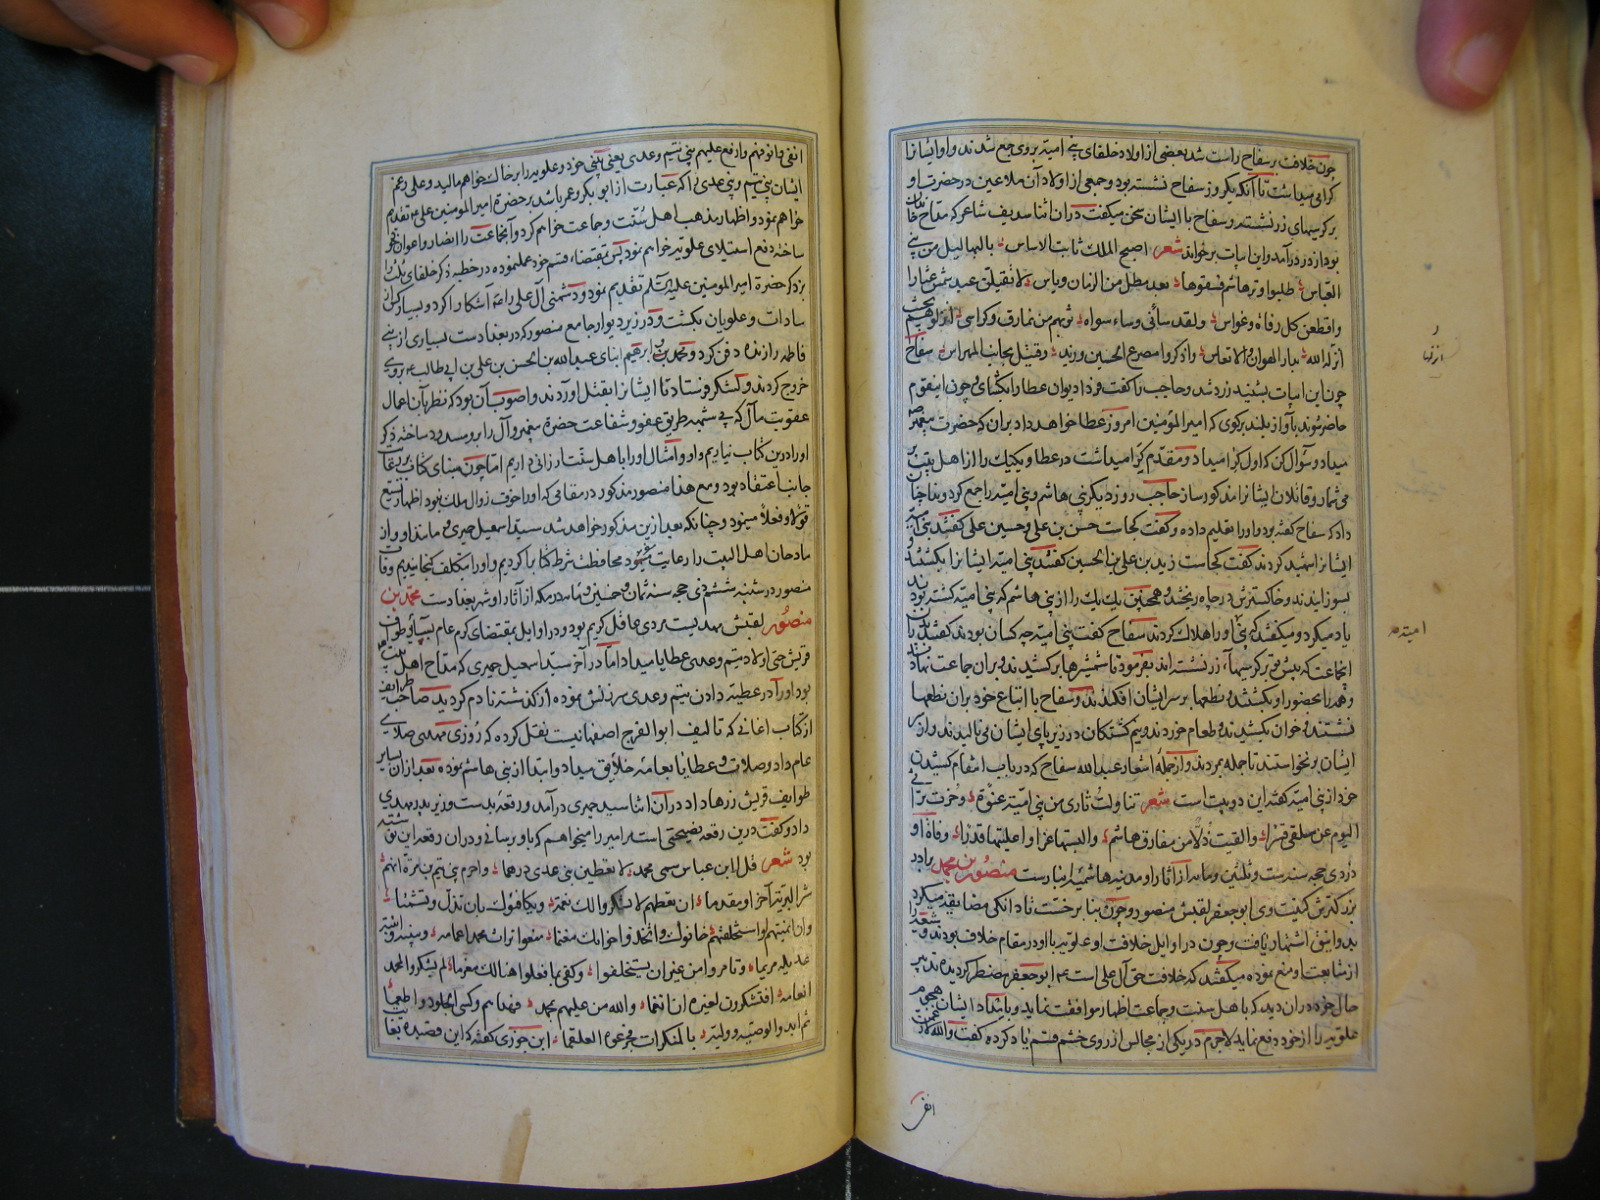 چون خلافت بر سفاح راست شد بعضی از اولاد خلفای بنی امیه بر وی جمع شدند و او ایشانرا
کرامی میداشت تا آنکه یکروز سفاح نشسته بود و جمعی از اولاد آن ملاعین در حضرت او
بر کرسیهای زر نشسته و سفاح با ایشان سخن میکفت در آن اثنا سدیف شاعر که مداح خاندان
بود از در درآمد و این ابیات برخواند شعر اصبح الملک ثابت الاساس بالبهالیل من بنی
العباس طلبوا وتر هاشم فشفوها بعد میل من الزمان ویاس لا تقیلن عبد شمس عثارا
واقطعن کل رقلة وغراس ولقد ساءنی وساء سوای قربهم من نمارق وکراسی انزلوها بحیث
انزلها الله بدار الهوان والاتعاس واذکروا مصرع الحسین وزید وقتیل بجانب المهراس سفاح
چون این ابیات بشنید زرد شد و حاجب را کفت فردا دیوان عطا را بکشای و چون این قوم
حاضر شوند بآواز بلند بر کوی که امیر المومنین امروز عطا خواهد داد بر آن که حضرت پیغمبر
میداد و سوال کن که اول کرا میداد و مقدم کرا میداشت در عطا و یکیک را از اهل بیت بر
می شمار و قاتلان ایشانرا مذکور ساز حاجب روز دیکر بنی هاشم و بنی امیه را جمع کرد و ندا چنان
داد که سفاح کفته بود و او را تعلیم داده و کفت کجاست حسن بن علی و حسین علی کفتند بنی امیه
ایشانرا شهید کردند کفت کجاست زید بن علی بن الحسین کفتند بنی امیه ایشانرا بکشتند و
بسوزانیدند و خاکسترش در چاه ریختند و همچنین یک یک را از بنی هاشم که بنی امیه کشته بودند
یاد میکرد و میکفتند که او را هلاک کردند سفاح کفت بنی امیه چه کسان بودند کفتند
انجماعت که پیش تو بر کرسیهای زر نشسته اند بفرمود تا شمشیرها بر کشیدند و بر آن جماعت نهادند
و همه را بحضور او بکشتند و نطعها بر سر ایشان افکندند و سفاح با اتباع خود بر آن نطعها
نشستند و خوان بکشیدند و طعام خوردند و نیم کشتکان در زیر پای ایشان می نالیدند و از
ایشان برنخواستند تا جمله بمردند و از جمله اشعار عبد الله سفاح که در باب انتقام کشیدن
خود از بنی امیه کفته این دو بیت است شعر تناولت ثاری من بنی امیة عنوة وحزت تراثی
الیوم عن سلفی قسرا والقیت ذلا من مفارق هاشم والبستها عزا واعلیتها قدرا وفاة او
در ذی حجه سنه ست و ثلثین و مایه از آثار او مدینه هاشمیه انبار است منصور بن محمد برادر
بزرکترش کنیت وی ابو جعفر لقبش منصور و چون بنا بر خست تا دانکی مضایقه میکرد
بدوانیق اشتهار یافت و چون در اوایل خلافت او علویه با او در مقام خلاف بودند و شعرا را
از متابعت او منع نموده میکفتند که خلافت حق آل علی است ابو جعفر مضطر کردیده تدبیر
حال خود در آن دید که با اهل سنت و جماعت اظهار موافقت نماید و بامداد ایشان هجوم
علویه را از خود دفع نماید لاجرم در یکی از مجالس از روی خشم قسم یاد کرده کفت والله لارغمن
انفی
انزلها
امیه
انفی وانوفهم وارفع علیهم بنی تیم وعدی یعنی بینی خود و علویه را بر خاک خواهم مالید و علی رغم
ایشان بنی تیم و بنی عدی را که عبارت از ابو بکر و عمر باشد بر حضرة امیر المومنین علی تقدیم
خواهم نمود و اظهار مذهب اهل سنت و جماعت خواهم کرد و آنجماعت را انصار و اعوان خود
ساخته دفع استیلای علویه خواهم نمود پس بمقتضاء قسم خود عمل نموده در خطبه ذکر خلفای ثلث را
بر ذکر حضرة امیر المومنین علیه السلم تقدیم نمود و دشمنی آل علی را آشکارا کرد و بسیار کس از
سادات و علویان بکشت و در زیر دیوار جامع منصور که در بغداد است بسیاری از بنی
فاطمه را زنده دفن کرد و محمد و ابرهیم ابنای عبد الله بن الحسن بن علی بن ابی طالب بر وی
خروج کردند و لشکر فرستاد تا ایشانرا بقتل آوردند و اصوب آن بود که نظر بآن اعمال
عقوبت مآل که بی شبهه طریق عفو و شفاعت حضرة پیغمبر و آل را بر و مسدود ساخته ذکر
او را درین کتاب نیاریم و او و امثال او را باهل سنت ارزانی داریم اما چون مبنای کتاب بر رعایت
جانب اعتقاد بود و مع هذا منصور مذکور در مقامی که او را خوف زوال ملک نبود اظهار تشیع
قولا و فعلا مینمود و چنانکه بعد ازین مذکور خواهد شد سید اسمعیل حمیری و مانند او را از
مادحان اهل البیت را رعایت مینمود محافظت شرط کتاب را کردیم و او را بتکلف کنجانیدیم وفات
منصور در شنبه ششم ذی حجه سنه ثمان و خمسین و مایه در مکه از آثار او شهر بغداد است محمد بن
منصور لقبش مهدیست مردی عاقل کریم بود و در اوایل بمقتضای کرم عام بسایر طوایف
قریش حتی اولاد تیم و عدی عطایا میداد اما در آخر سید اسمعیل حمیری که مداح اهل بیت
بود او را در عطیه دادن تیم و عدی سرزنش نموده از کذشته نادم کردید صاحب طرایف
از کتاب اغانی که تالیف ابو الفرج اصفهانیست نقل کرده که روزی مهدی صلای
عام داد و صلات و عطایا بعامه خلایق میداد و ابتدا از بنی هاشم نموده بعد از آن بسایر
طوایف قریش زرها داد در آن اثنا سید حمیری درآمد و رقعه بدست وزیر پدر مهدی
داد و کفت درین رقعه نصیحتی است مر امیر را میخواهم که باو برسانی و در آن رقعه این نوشته
بود شعر قل لابن عباس سمی محمد لا تعطین بنی عدی درهما واحرم بنی تیم بن مرة انهم
شر البریة آخرا ومقدما ان تعطهم لا یشکروا لک نعمة ویکافئوک بان تذم وتشتما
وان ائتمنتهم او استعملتهم خانوک واتخذوا خراجک مغنما منعوا تراث محمد اعمامه وبنیه وابنته
عدیلة مریما وتامروا من غیر ان یستخلفوا وکفی بما فعلوا هنالک مغرما لم یشکروا لمحمد
انعامه افیشکرون لغیره ان انعما والله من علیهم بمحمد وهداهم وکسی الجلود واطعما
ثم انبروا لوصیه وولیه بالمنکرات فجرعوه العلقما ابن جوزی کفته که این قصیده بغایت